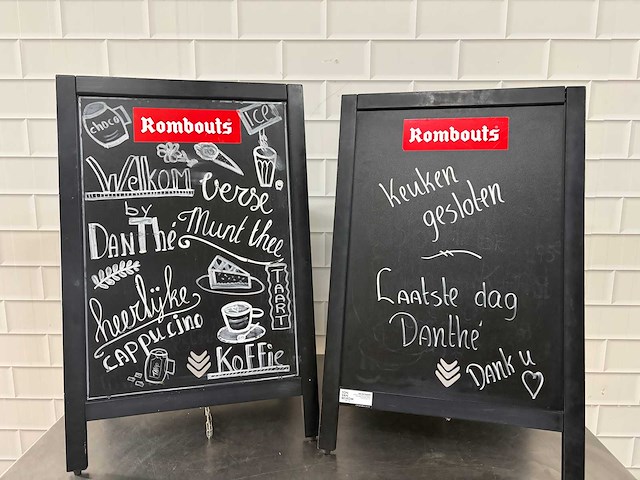 Rombouts
choco
ICE
Welkom
by
DanThé
verse
Munt thee
heerlijke
cappucino
TAART
Koffie
Rombouts
Keuken
gesloten
Laatste dag
Danthé
Dank u